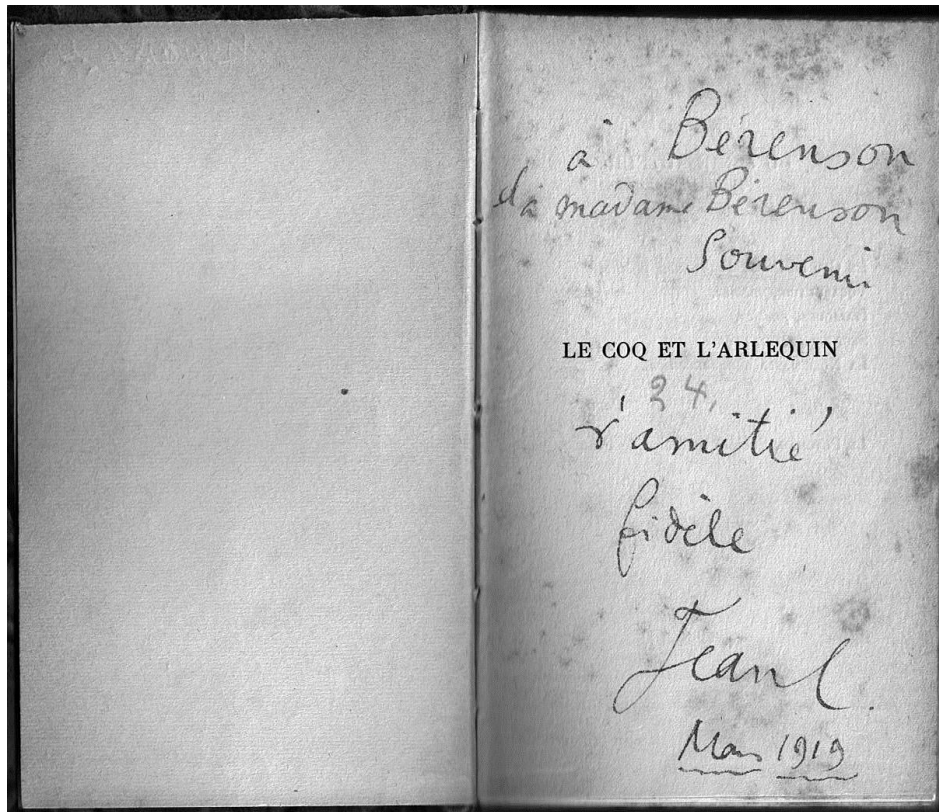 à Bérenson
et à madame Bérenson
Souvenir
LE COQ ET L'ARLEQUIN
24.
d'amitié
fidèle
Jean C.
Mars 1919